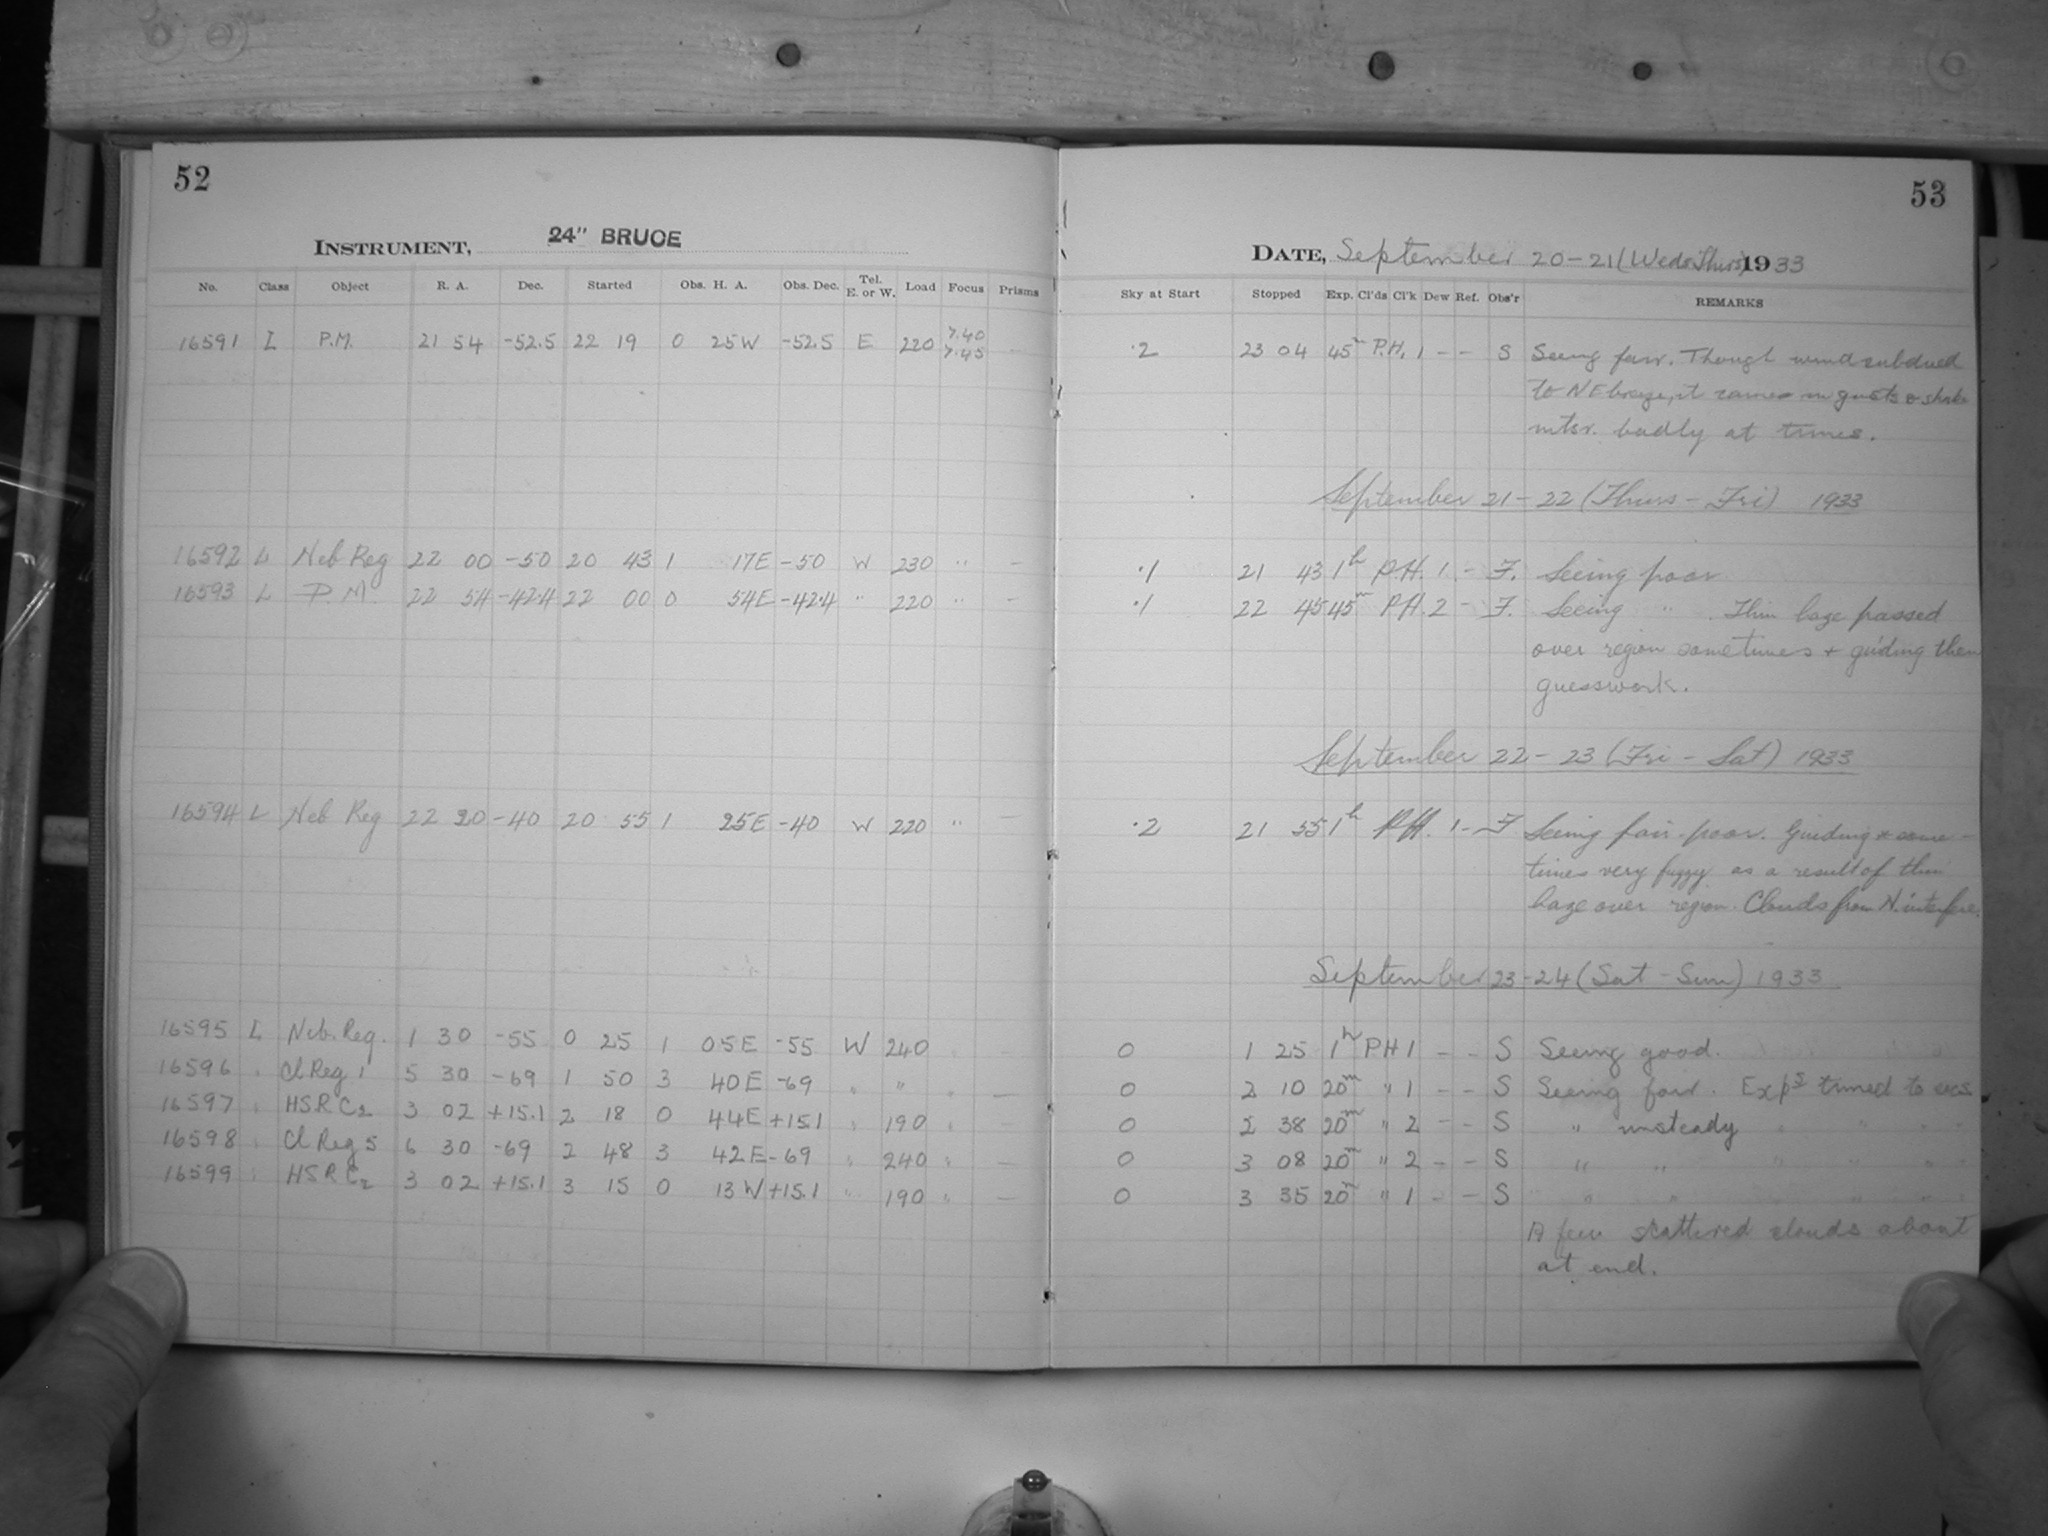 52
INSTRUMENT, 24" BRUCE
No. Class Object R. A. Dec. Started Obs. H. A. Obs. Dec. Tel. E. or W. Load Focus Prisms
16591 L P.M. 21 54 -52.5 22 19 0 25W -52.5 E 220 7.40 7.45 —
16592 L Neb Reg 22 00 -50 20 43 1 17E -50 W 230 " —
16593 L P.M. 22 54 -42.4 22 00 0 54E -42.4 " 220 " —
16594 L Neb Reg 22 20 -40 20 55 1 25E -40 W 220 " —
16595 L Neb. Reg. 1 30 -55 0 25 1 05E -55 W 240 "
16596 " Cl Reg 1 5 30 -69 1 50 3 40E -69 " " " —
16597 " HSR C2 3 02 +15.1 2 18 0 44E +15.1 " 190 " —
16598 " Cl Reg 5 6 30 -69 2 48 3 42E -69 " 240 " —
16599 " HSR C2 3 02 +15.1 3 15 0 13W +15.1 " 190 " —
53
DATE, September 20-21 (Weds Thurs) 1933
Sky at Start Stopped Exp. Cl'ds Cl'k Dew Ref. Obs'r REMARKS
.2 23 04 45m P.H. 1 - - S Seeing fair. Though wind subdued
to NE breeze, it came in gusts & shake
mtsr. badly at times.
September 21-22 (Thurs - Fri) 1933
.1 21 43 1h P.H. 1 - F. Seeing poor
.1 22 45 45m P.H. 2 - F. Seeing " . Thin haze passed
over region sometimes + guiding then
guesswork.
September 22-23 (Fri - Sat) 1933
.2 21 55 1h P.H. 1 - F Seeing fair-poor. Guiding * some-
times very fuzzy as a result of thin
haze over region. Clouds from N. interfere.
September 23-24 (Sat - Sun) 1933
0 1 25 1h PH 1 - - S Seeing good.
0 2 10 20m " 1 - - S Seeing fair. Exps timed to secs
0 2 38 20m " 2 - - S " unsteady " " " "
0 3 08 20m " 2 - - S " " " " " "
0 3 35 20m " 1 - - S " " " " "
A few scattered clouds about
at end.